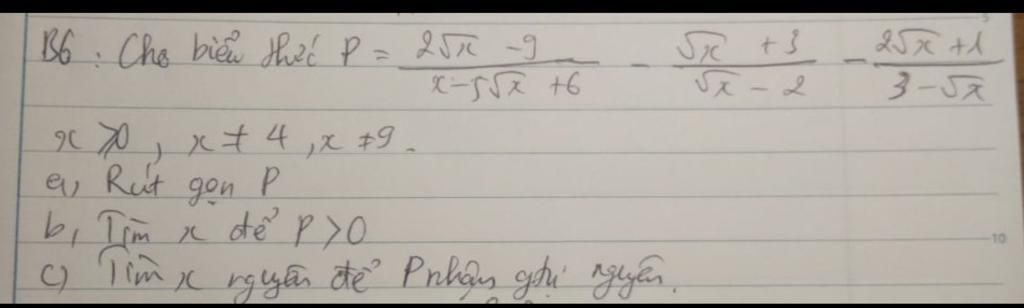 B6 : Cho biểu thức P = \frac{2\sqrt{x} - 9}{x - 5\sqrt{x} + 6} - \frac{\sqrt{x} + 3}{\sqrt{x} - 2} - \frac{2\sqrt{x} + 1}{3 - \sqrt{x}}
x ≥ 0 , x ≠ 4 , x ≠ 9 .
a, Rút gọn P
b, Tìm x để P > 0
c) Tìm x nguyên để P nhận giá trị nguyên.
10